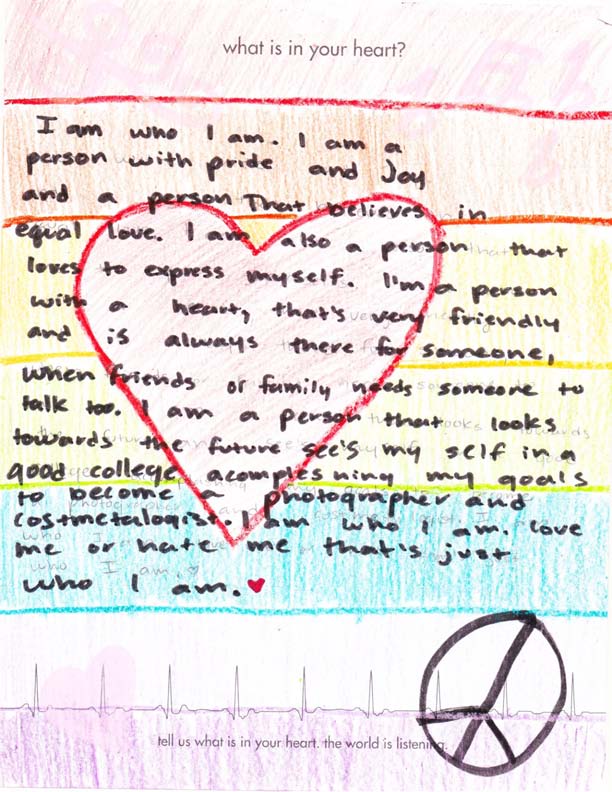 what is in your heart?
I am who I am. I am a
person with pride and Joy
and a person That believes in
equal love. I am also a person that
loves to express myself. I'm a person
with a heart, that's very friendly
and is always there for someone,
when friends or family needs someone to
talk too. I am a person that looks
towards the future see's my self in a
good college acomplesning my goals
to become a photographer and
costmetalogist. I am who I am. love
me or hate me that's just
who I am.
tell us what is in your heart. the world is listening.